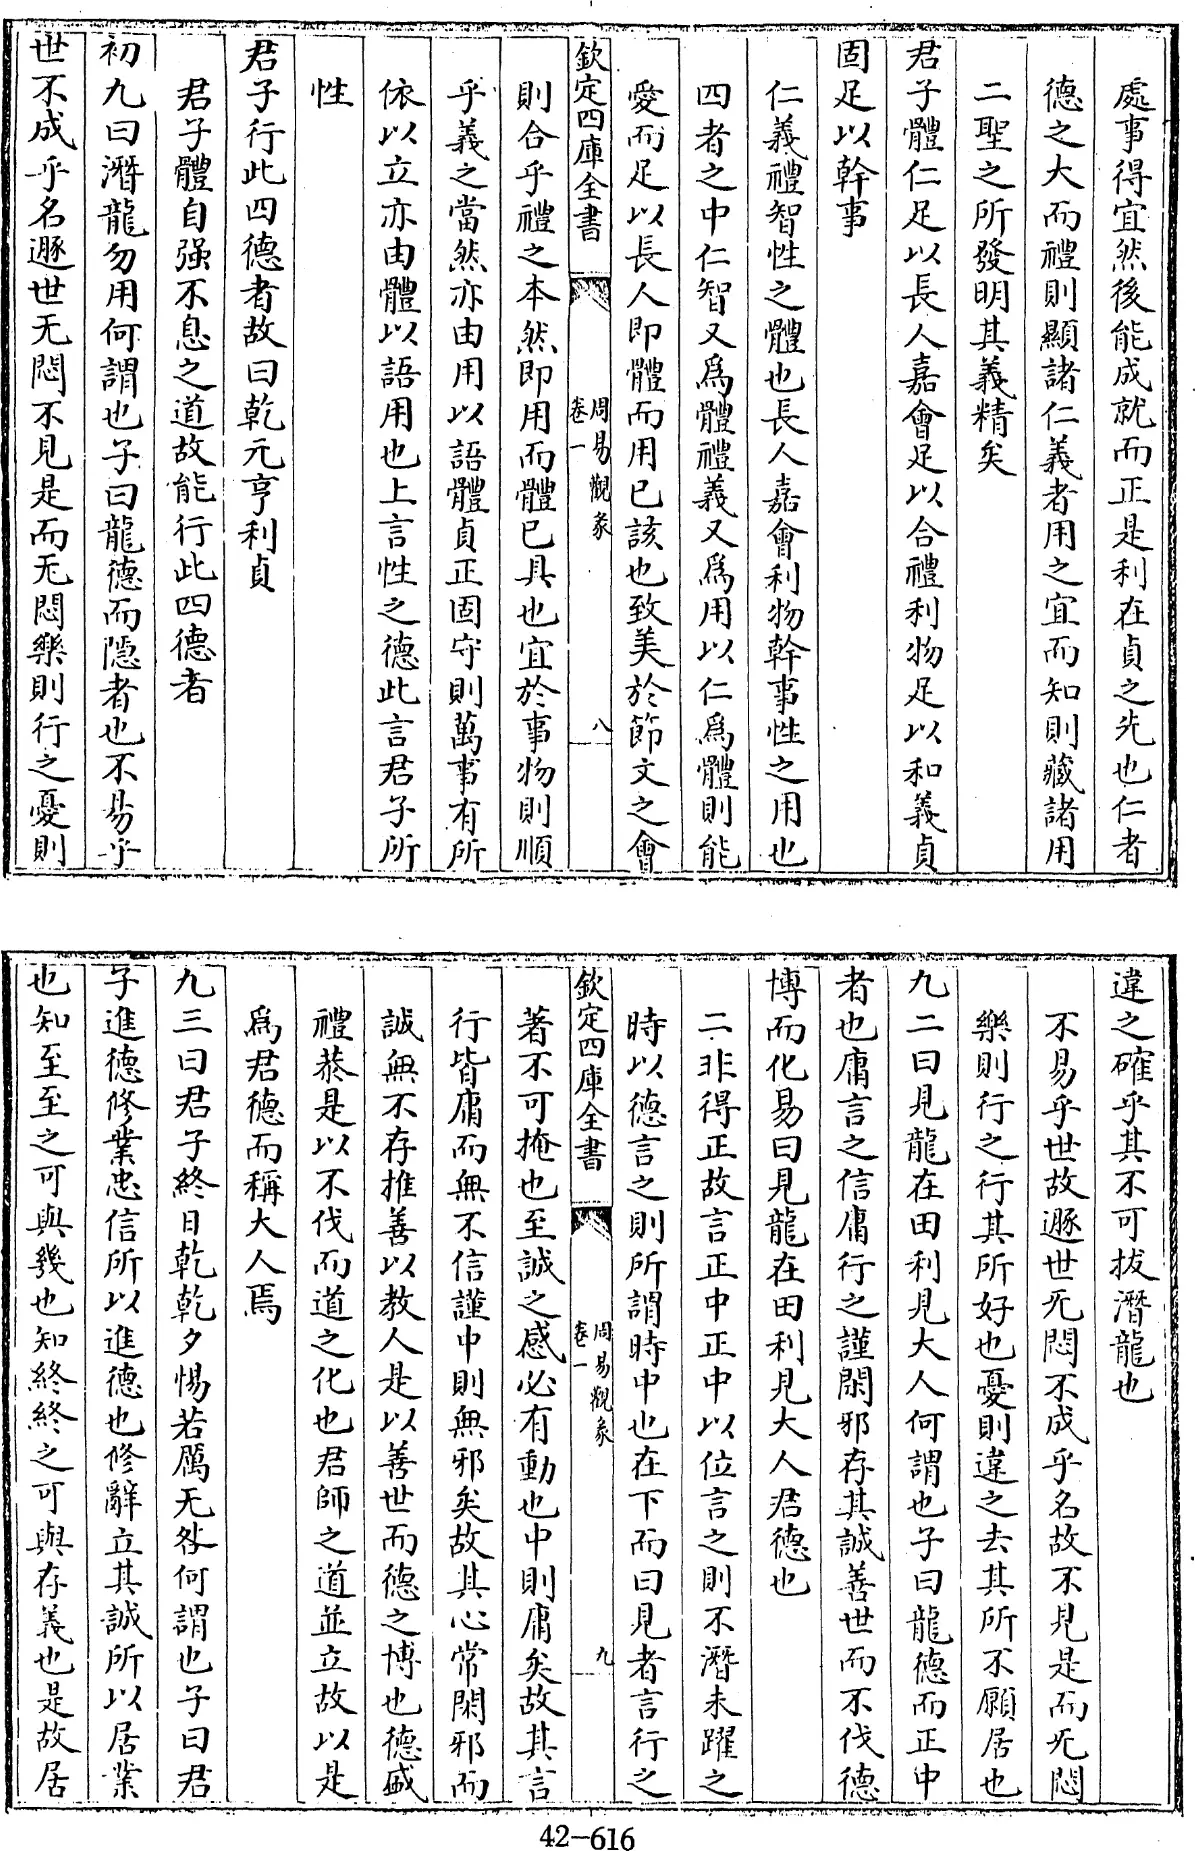 處事得宜然後能成就而正是利在貞之先也仁者
德之大而禮則顯諸仁義者用之宜而知則藏諸用
二聖之所發明其義精矣
君子體仁足以長人嘉會足以合禮利物足以和義貞
固足以幹事
仁義禮智性之體也長人嘉會利物幹事性之用也
四者之中仁智又爲體禮義又爲用以仁爲體則能
愛而足以長人即體而用已該也致美於節文之會
欽定四庫全書
周易觀彖
卷一
八
則合乎禮之本然即用而體已具也宜於事物則順
乎義之當然亦由用以語體貞正固守則萬事有所
依以立亦由體以語用也上言性之德此言君子所
性
君子行此四德者故曰乾元亨利貞
君子體自强不息之道故能行此四德者
初九曰潛龍勿用何謂也子曰龍德而隱者也不易乎
世不成乎名遯世无悶不見是而无悶樂則行之憂則
違之確乎其不可拔潛龍也
不易乎世故遯世无悶不成乎名故不見是而无悶
樂則行之行其所好也憂則違之去其所不願居也
九二曰見龍在田利見大人何謂也子曰龍德而正中
者也庸言之信庸行之謹閑邪存其誠善世而不伐德
博而化易曰見龍在田利見大人君德也
二非得正故言正中正中以位言之則不潛未躍之
時以德言之則所謂時中也在下而曰見者言行之
欽定四庫全書
周易觀彖
卷一
九
著不可掩也至誠之感必有動也中則庸矣故其言
行皆庸而無不信謹中則無邪矣故其心常閑邪而
誠無不存推善以教人是以善世而德之博也德盛
禮恭是以不伐而道之化也君師之道並立故以是
爲君德而稱大人焉
九三曰君子終日乾乾夕惕若厲无咎何謂也子曰君
子進德修業忠信所以進德也修辭立其誠所以居業
也知至至之可與幾也知終終之可與存義也是故居
42-616